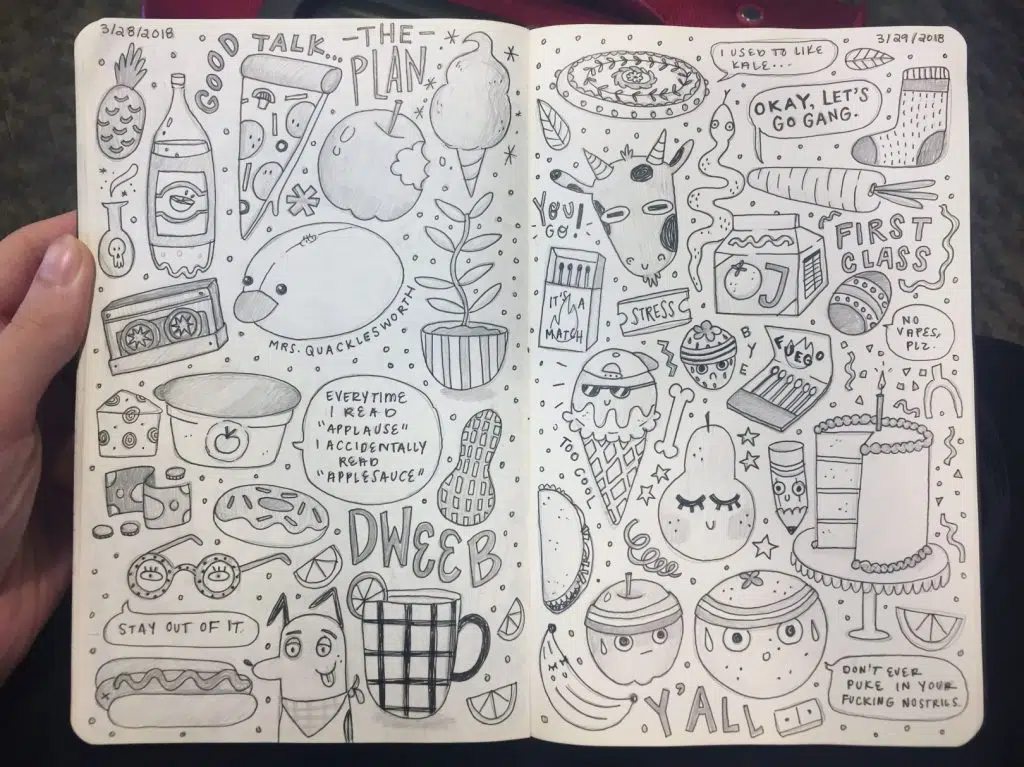 3/28/2018
GOOD TALK...
-THE-
PLAN
MRS. QUACKLESWORTH
EVERYTIME
I READ
"APPLAUSE"
I ACCIDENTALLY
READ
"APPLESAUCE"
DWEEB
STAY OUT OF IT.
3/29/2018
I USED TO LIKE
KALE...
OKAY, LET'S
GO GANG.
YOU
GO!
J
FIRST
CLASS
IT'S A
MATCH
STRESS
BYE
FUEGO
NO
VAPES,
PLZ.
TOO COOL
Y'ALL
DON'T EVER
PUKE IN YOUR
FUCKING NOSTRILS.